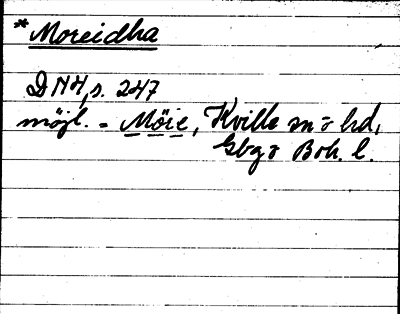 *Moreidha
DNH, s. 247
möjl. = Möie, Kville sn o hd,
Gbg o Boh. l.